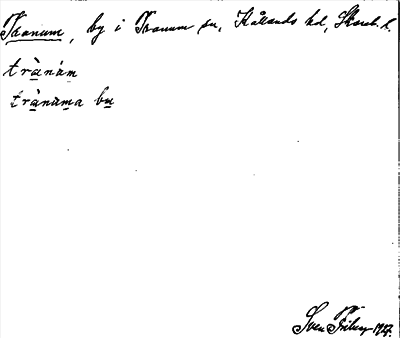 Tranum, by i Tranum sn, Kållands hd, Skarab. l.
trànám
trànáma bu
Sven Friberg 1927.